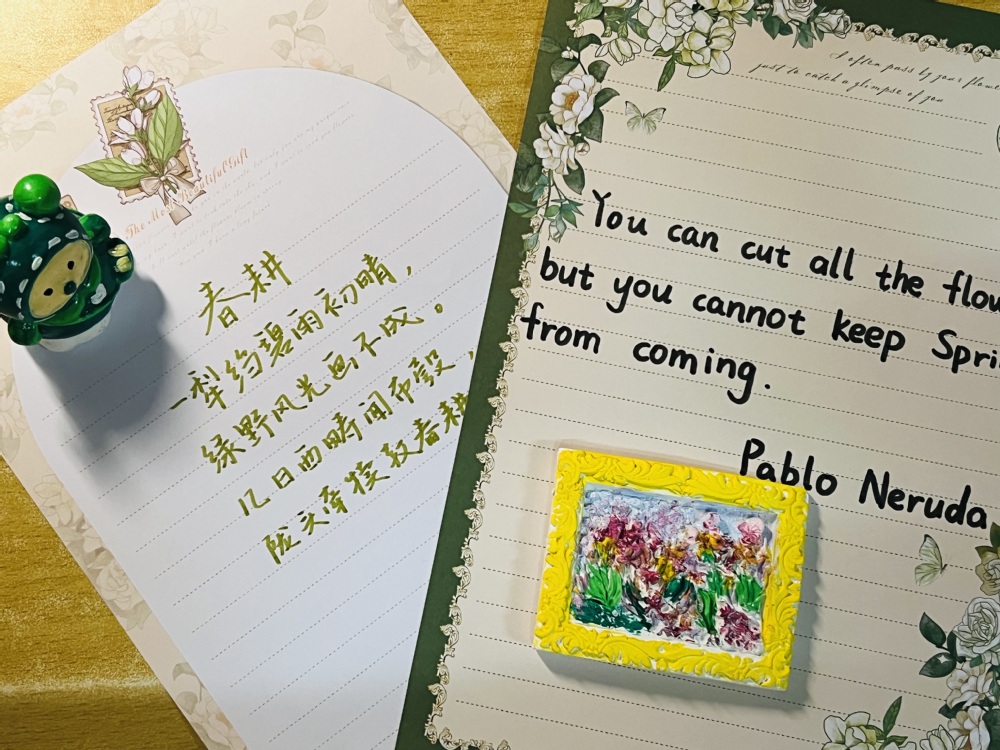 The Beautiful Gift
春耕
一犁 碧雨初晴，
绿野风光画不成。
几日西畴间布穀，
陇头牵犊教春耕
I often pass by your flow
just to catch a glimpse of you
You can cut all the flow
but you cannot keep Spri
from coming.
Pablo Neruda